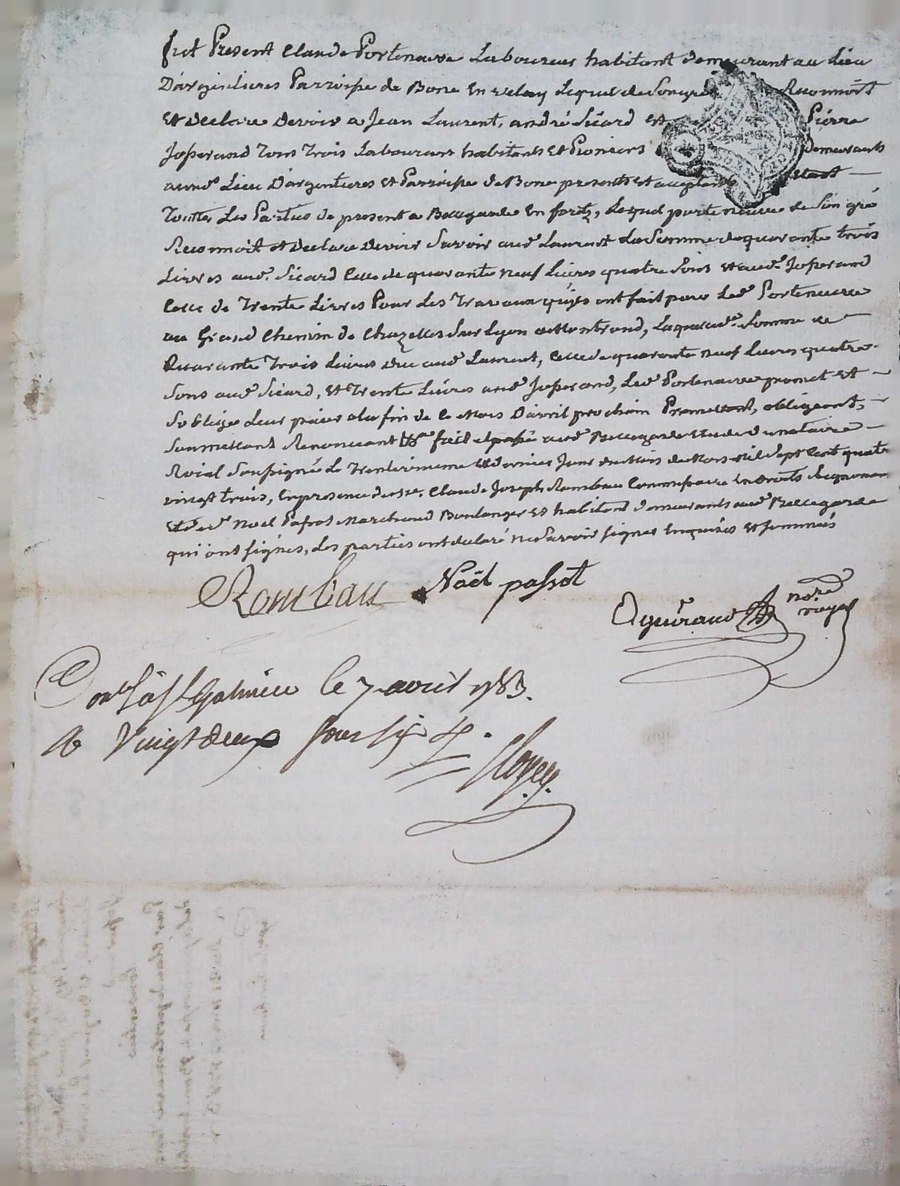 fut Present Claude Porteneuve Laboureur habitant demeurant au Lieu
D'argentieres Parroisse de Bone En velay Lequel de Son gré Reconnoit
Et Declare Devoir a Jean Laurent, andré Sicard et Pierre
Josserand Tous Trois Laboureurs habitants Et Pioniers demeurants
aud. Lieu D'argentieres et Parroisse de Bone presents Et acceptants Etant
Toutes Les Parties de present a Bellegarde En forez, Lequel porteneuve de Son gré
Reconnoit et Declare Devoir Savoir aud. Laurent La Somme de quarante trois
Livres aud. Sicard Celle de quarante neuf Livres quatre Sous et aud. Josserand
Celle de Trente Livres Pour Les Travaux qu'ils ont fait pour Led. Porteneuve
au Grand Chemin de Chazelles Sur Lyon a Montrond, Laquelle Somme de
Quarante Trois Livres Due aud. Laurent, Celle de quarante neuf Livres quatre
Sous aud. Sicard, et Trente Livres aud. Josserand, Led. Porteneuve promet Et
S'oblige Leur paier a la fin de Ce Mois D'avril prochain Promettant, obligeant,
Soumettant Renonceant fait et passé aud. Bellegarde Etude du notaire
Roial Soussigné Le Trentunieme et Dernier Jour du Mois de Mars Mil Sept Cent quatre
vingt trois, En presence de Claude Joseph Rombau Commissaire En Droits
Et de Noel Passot Marchand Boulanger et habitant Demeurants aud. Bellegarde
qui ont signés, Les parties ont declaré ne Savoir signer Enquises et sommés
Rombau Noël passot
Dgueraud nore
royal
Con.lé à St Galmier le 7 avril 1783.
R Vingt deux sous six d.